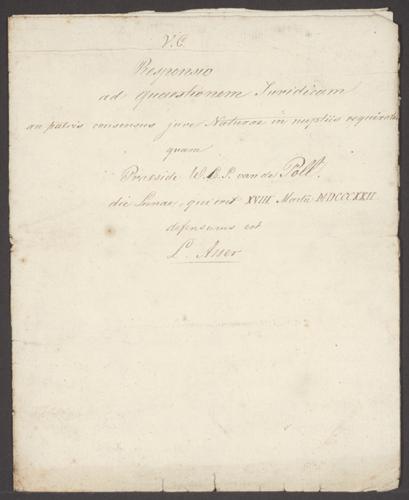 V.C.
Responsio
ad quaestionem Juridicam
an patris consensus jure Naturae in nuptiis requiratur
quam
Praeside W. L. P. van de Poll.
die Lunae, qui erit XVIII Martii MDCCCXXII
defensurus est
L. Asser